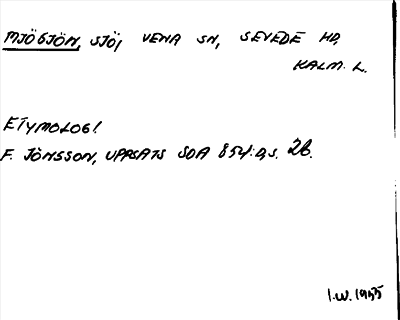 MJÖGJÖN, SJÖ, VENA SN, SEVEDE HD,
KALM. L.
ETYMOLOGI.
F. JÖNSSON, UPPSATS SOA 854:9, S. 26.
I.W. 1955